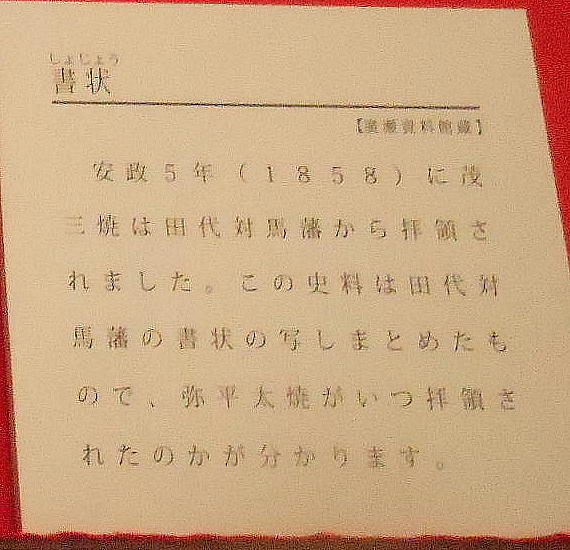 しょじょう
書状
【廣瀬資料館蔵】
安政5年(1858)に茂
三焼は田代対馬藩から拝領さ
れました。この史料は田代対
馬藩の書状の写しまとめたも
ので、弥平太焼がいつ拝領さ
れたのかが分かります。